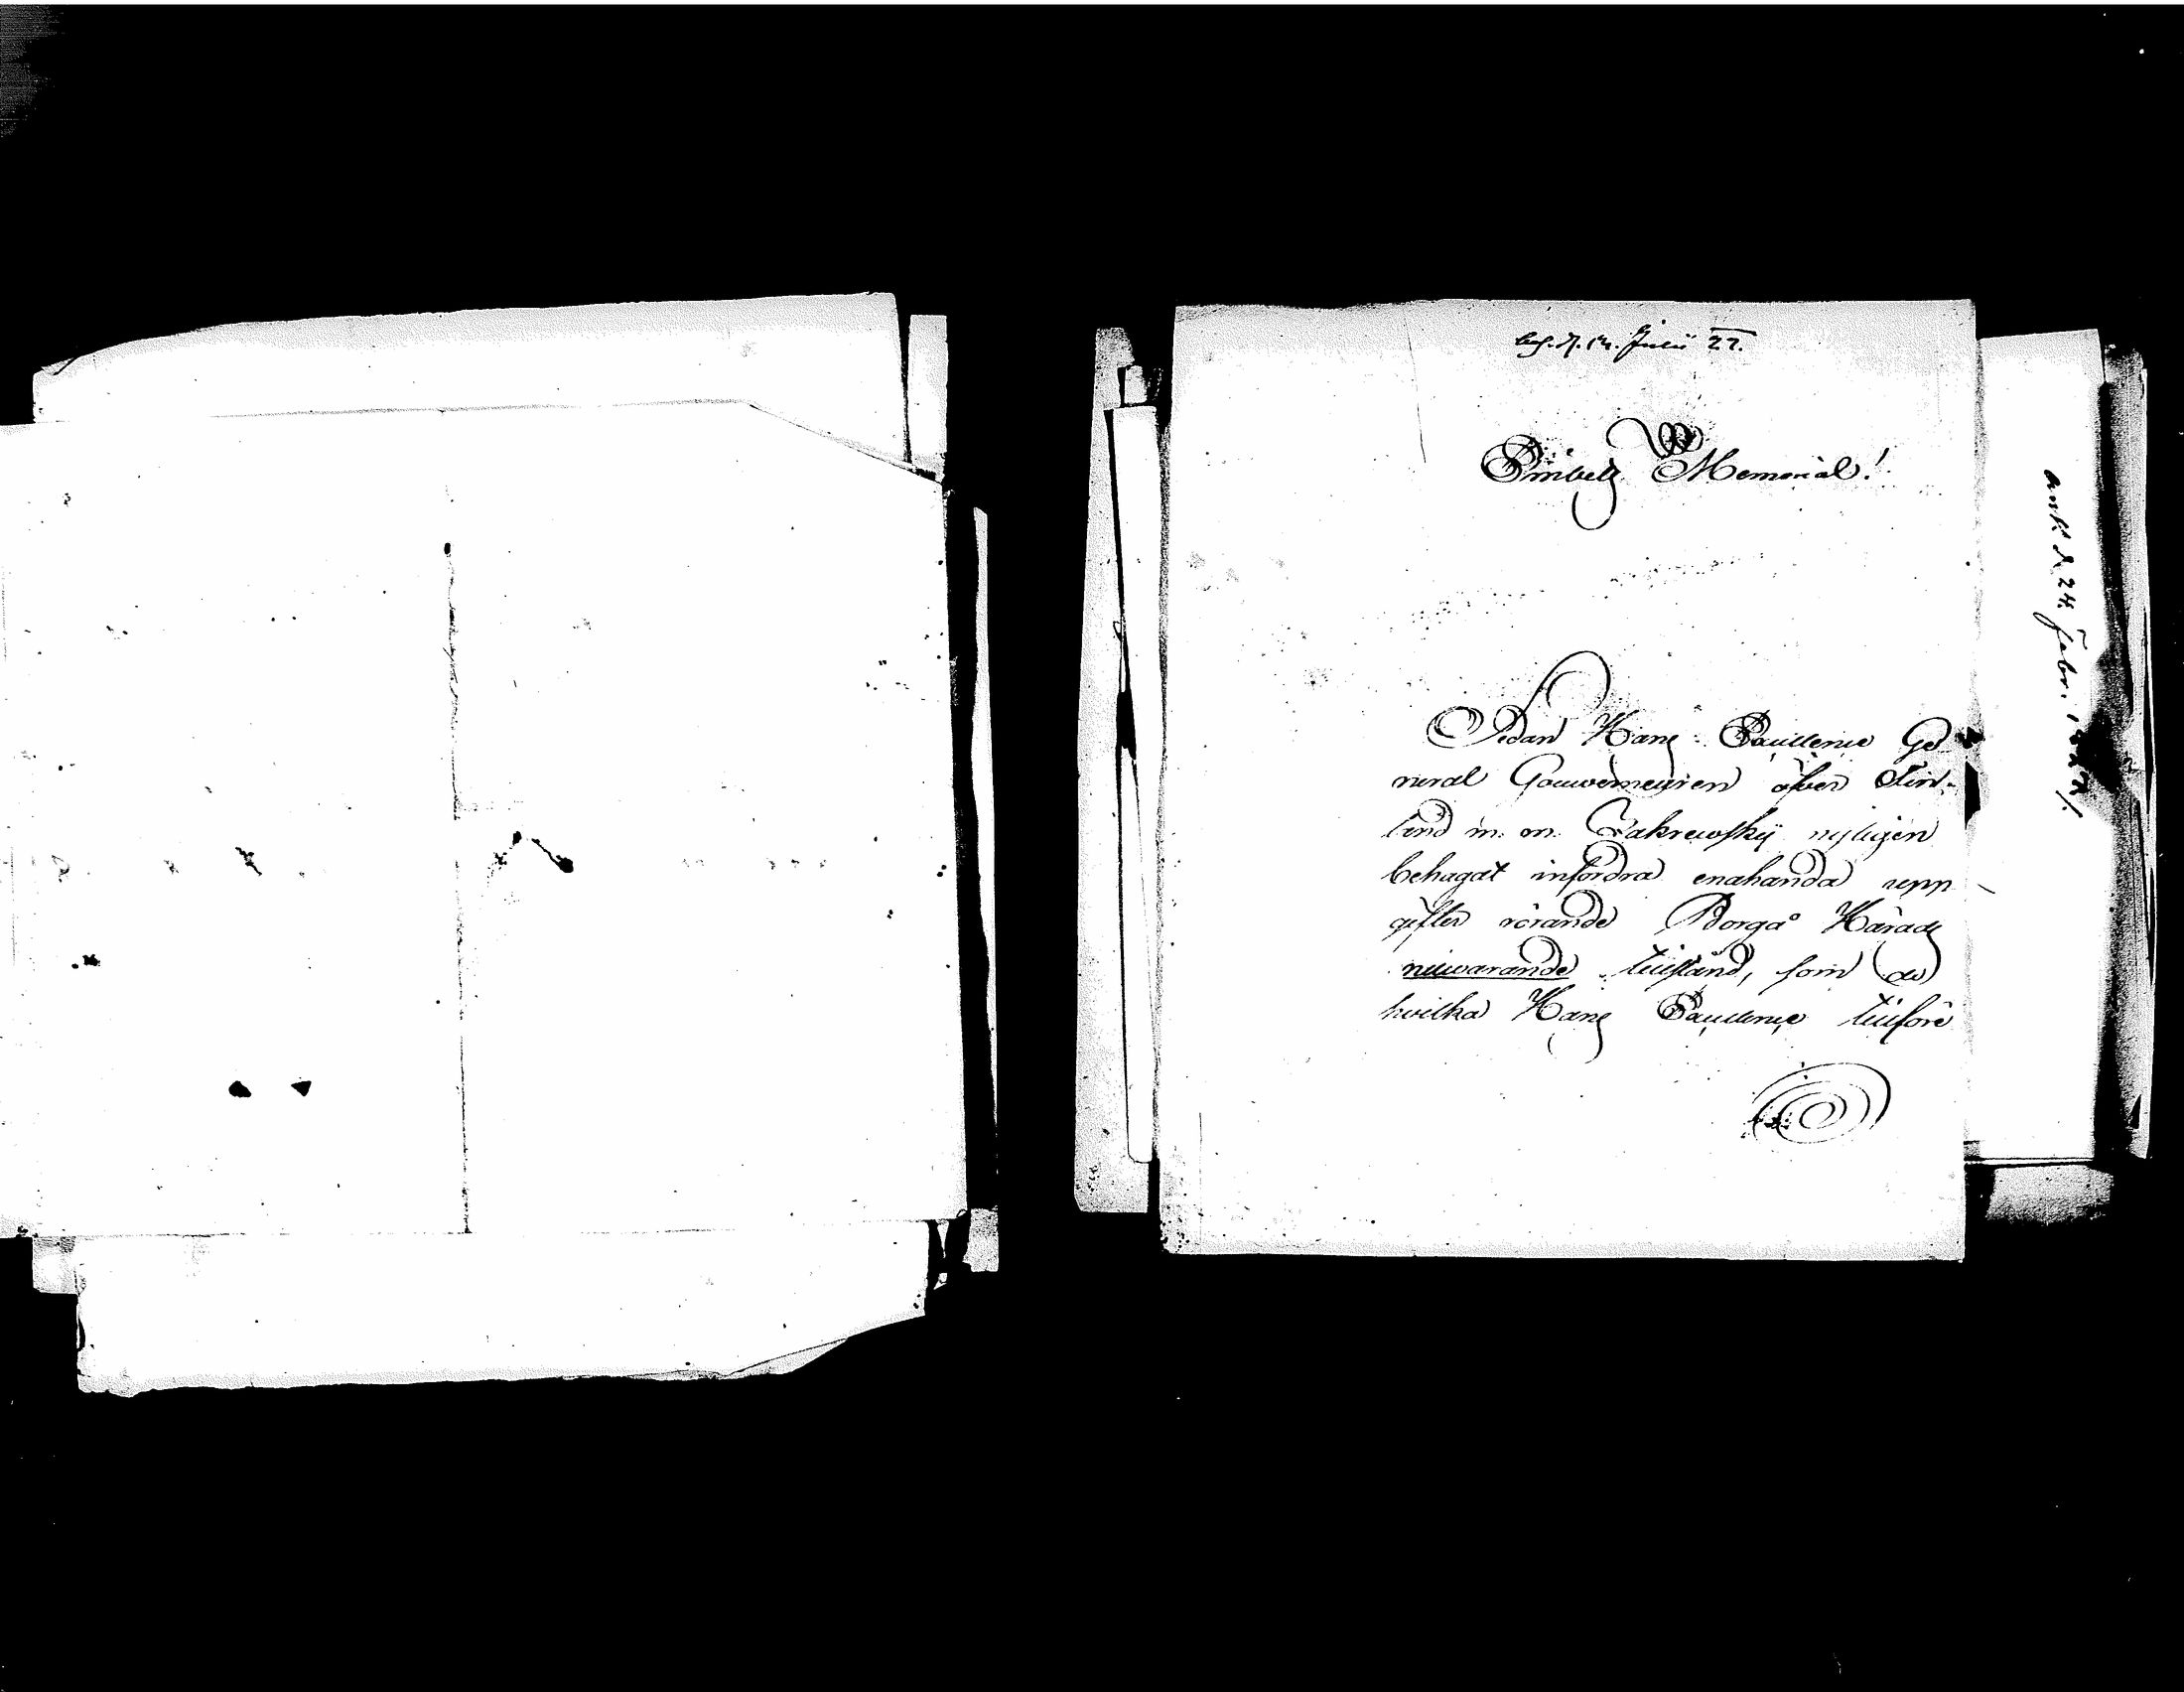 d. 14. Junii 27.
Ämbets Memorial!
Sedan Hans Excellence Ge
neral Gouverneuren öfver Fin-
land m. m. Zakrewskij nyligen
behagat infordra enahanda upp
gifter rörande Borgå Härads
nuwarande tillstånd, som de
hvilka Hans Excellence tillföre
ank d. 24. Febr.